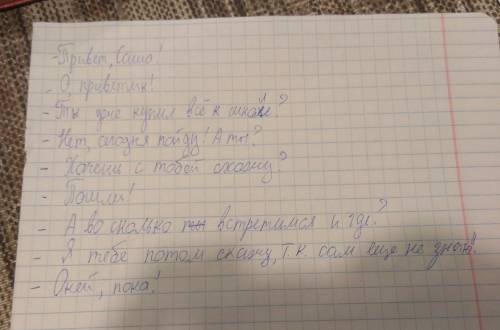 - Привет, Саша!
- О, приветик!
- Ты уже купил всё к школе?
- Нет, сегодня пойду! А ты?
- Хочешь с тобой схожу?
- Пошли!
- А во сколько ты встретимся и где?
- Я тебе потом скажу, т.к. сам ещё не знаю!
- Окей, пока!